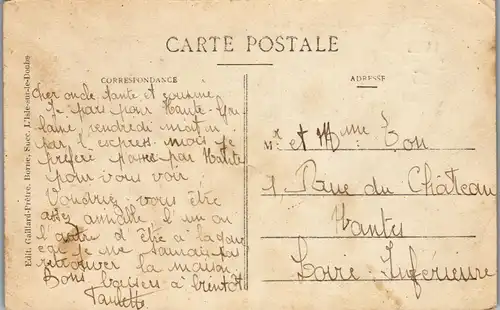 CARTE POSTALE
CORRESPONDANCE
cher oncle tante et cousine
Je pars pour Nantes
vendredi matin
par l'express mais je
préfère passer par Nantes
pour vous voir
Voudriez-vous être
assez aimable l'un ou
l'autre d'être à la gare
car je ne saurais pas
retrouver la maison
Bons baisers à bientôt
Paulette
ADRESSE
Mr et Mme Ton
1 Rue du Château
Nantes
Loire Inférieure
Edit. Gaillard-Prêtre, Borne, Succ. L'Isle-sur-le-Doubs